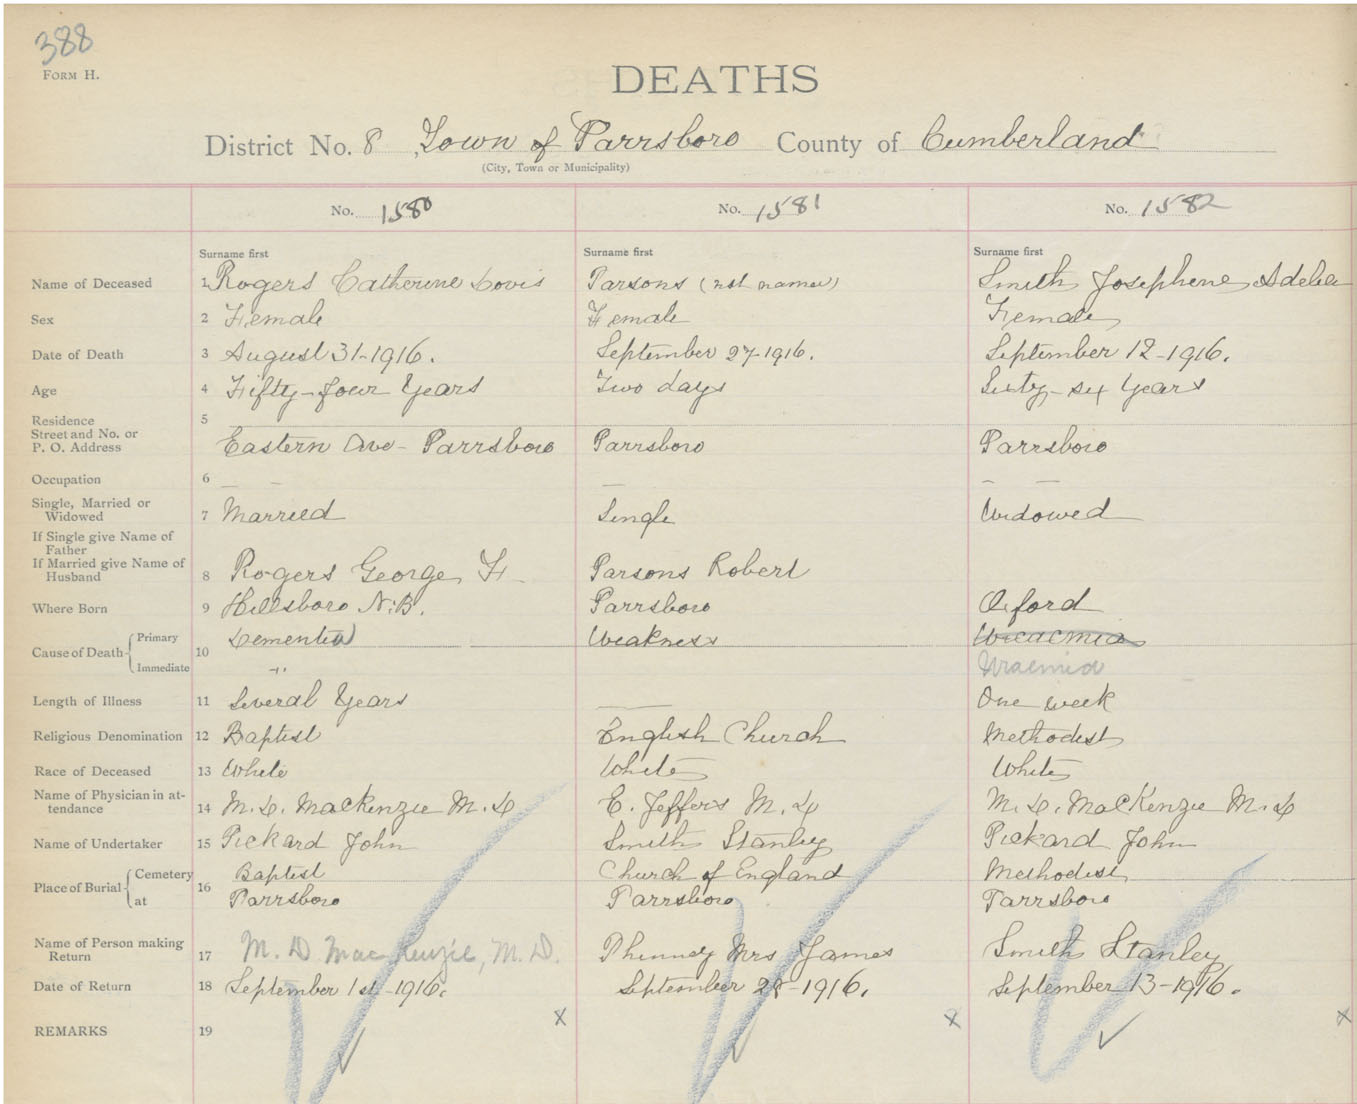 388
FORM H.
DEATHS
District No. 8, Town of Parrsboro County of Cumberland
(City, Town or Municipality)
No. 1580 No. 1581 No. 1582
Surname first Surname first Surname first
Name of Deceased 1 Rogers Catherine Parsons (not named) Smith Josephene
Sex 2 Female Female Female
Date of Death 3 August 31-1916. September 27-1916. September 12-1916.
Age 4 Fifty-four Years Two days Sixty-six Years
Residence 5
Street and No. or
P. O. Address Eastern Ave- Parrsboro Parrsboro Parrsboro
Occupation 6 — — — — —
Single, Married or
Widowed 7 Married Single Widowed
If Single give Name of
Father
If Married give Name of
Husband 8 Rogers George F Parsons Robert
Where Born 9 Hillsboro N.B. Parrsboro Oxford
Cause of Death Primary 10 Dementia Weakness
Immediate " Uraemia
Length of Illness 11 Several Years — One week
Religious Denomination 12 Baptist English Church Methodist
Race of Deceased 13 White White White
Name of Physician in at-
tendance 14 M.D. MacKenzie M.D E. Jeffers M.D M.D. MacKenzie M.D
Name of Undertaker 15 Pickard John Smith Stanley Pickard John
Place of Burial Cemetery 16 Baptist Church of England Methodist
at Parrsboro Parrsboro Parrsboro
Name of Person making
Return 17 M. D. MacKenzie, M.D. Phinney Mrs James Smith Stanley
Date of Return 18 September 1st-1916. September 28-1916. September 13-1916.
REMARKS 19 x x x